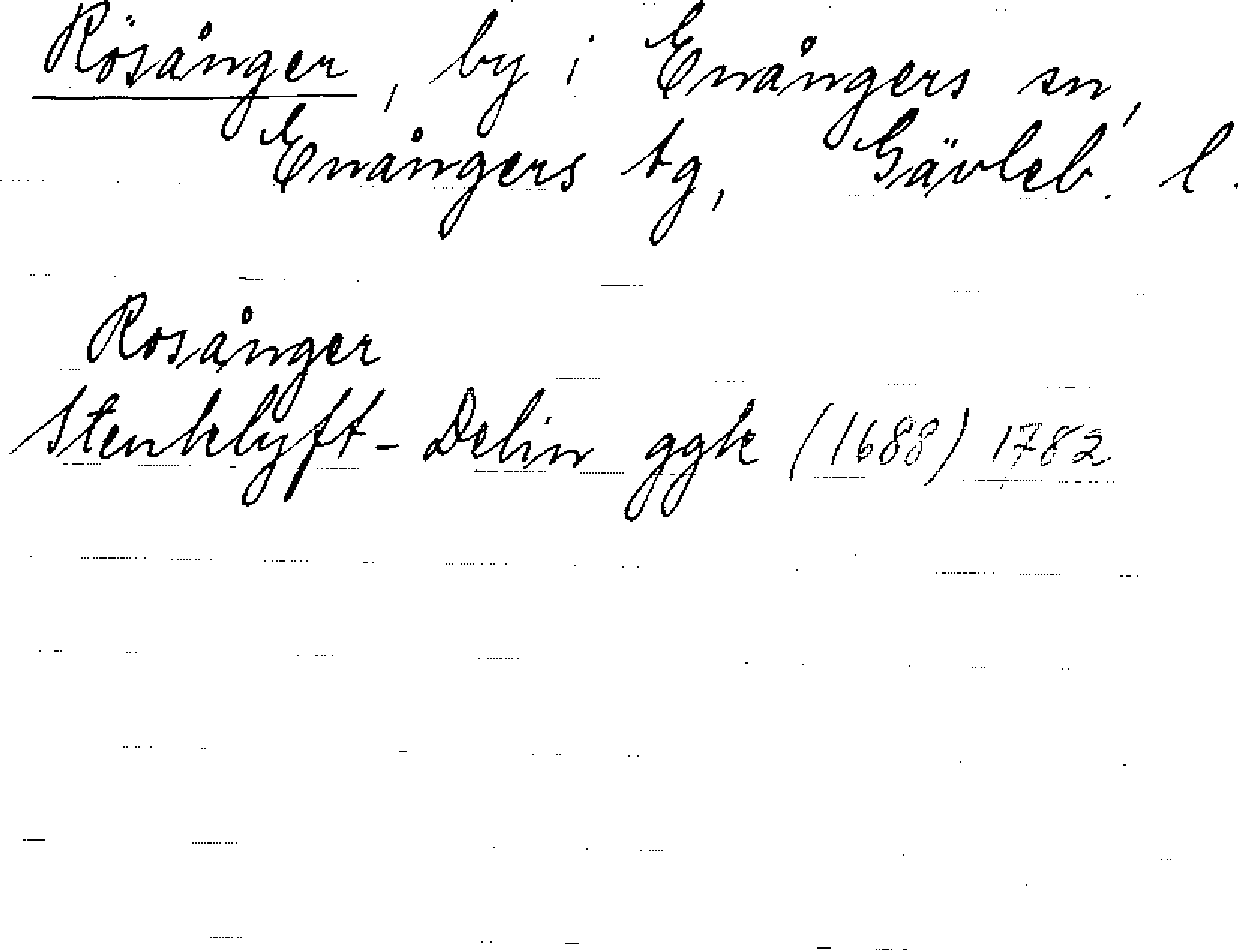 Rösånger, by i Enångers sn,
Enångers tg, Gävleb. l.
Rosånger
Stenklyft-Delin ggk (1688) 1782